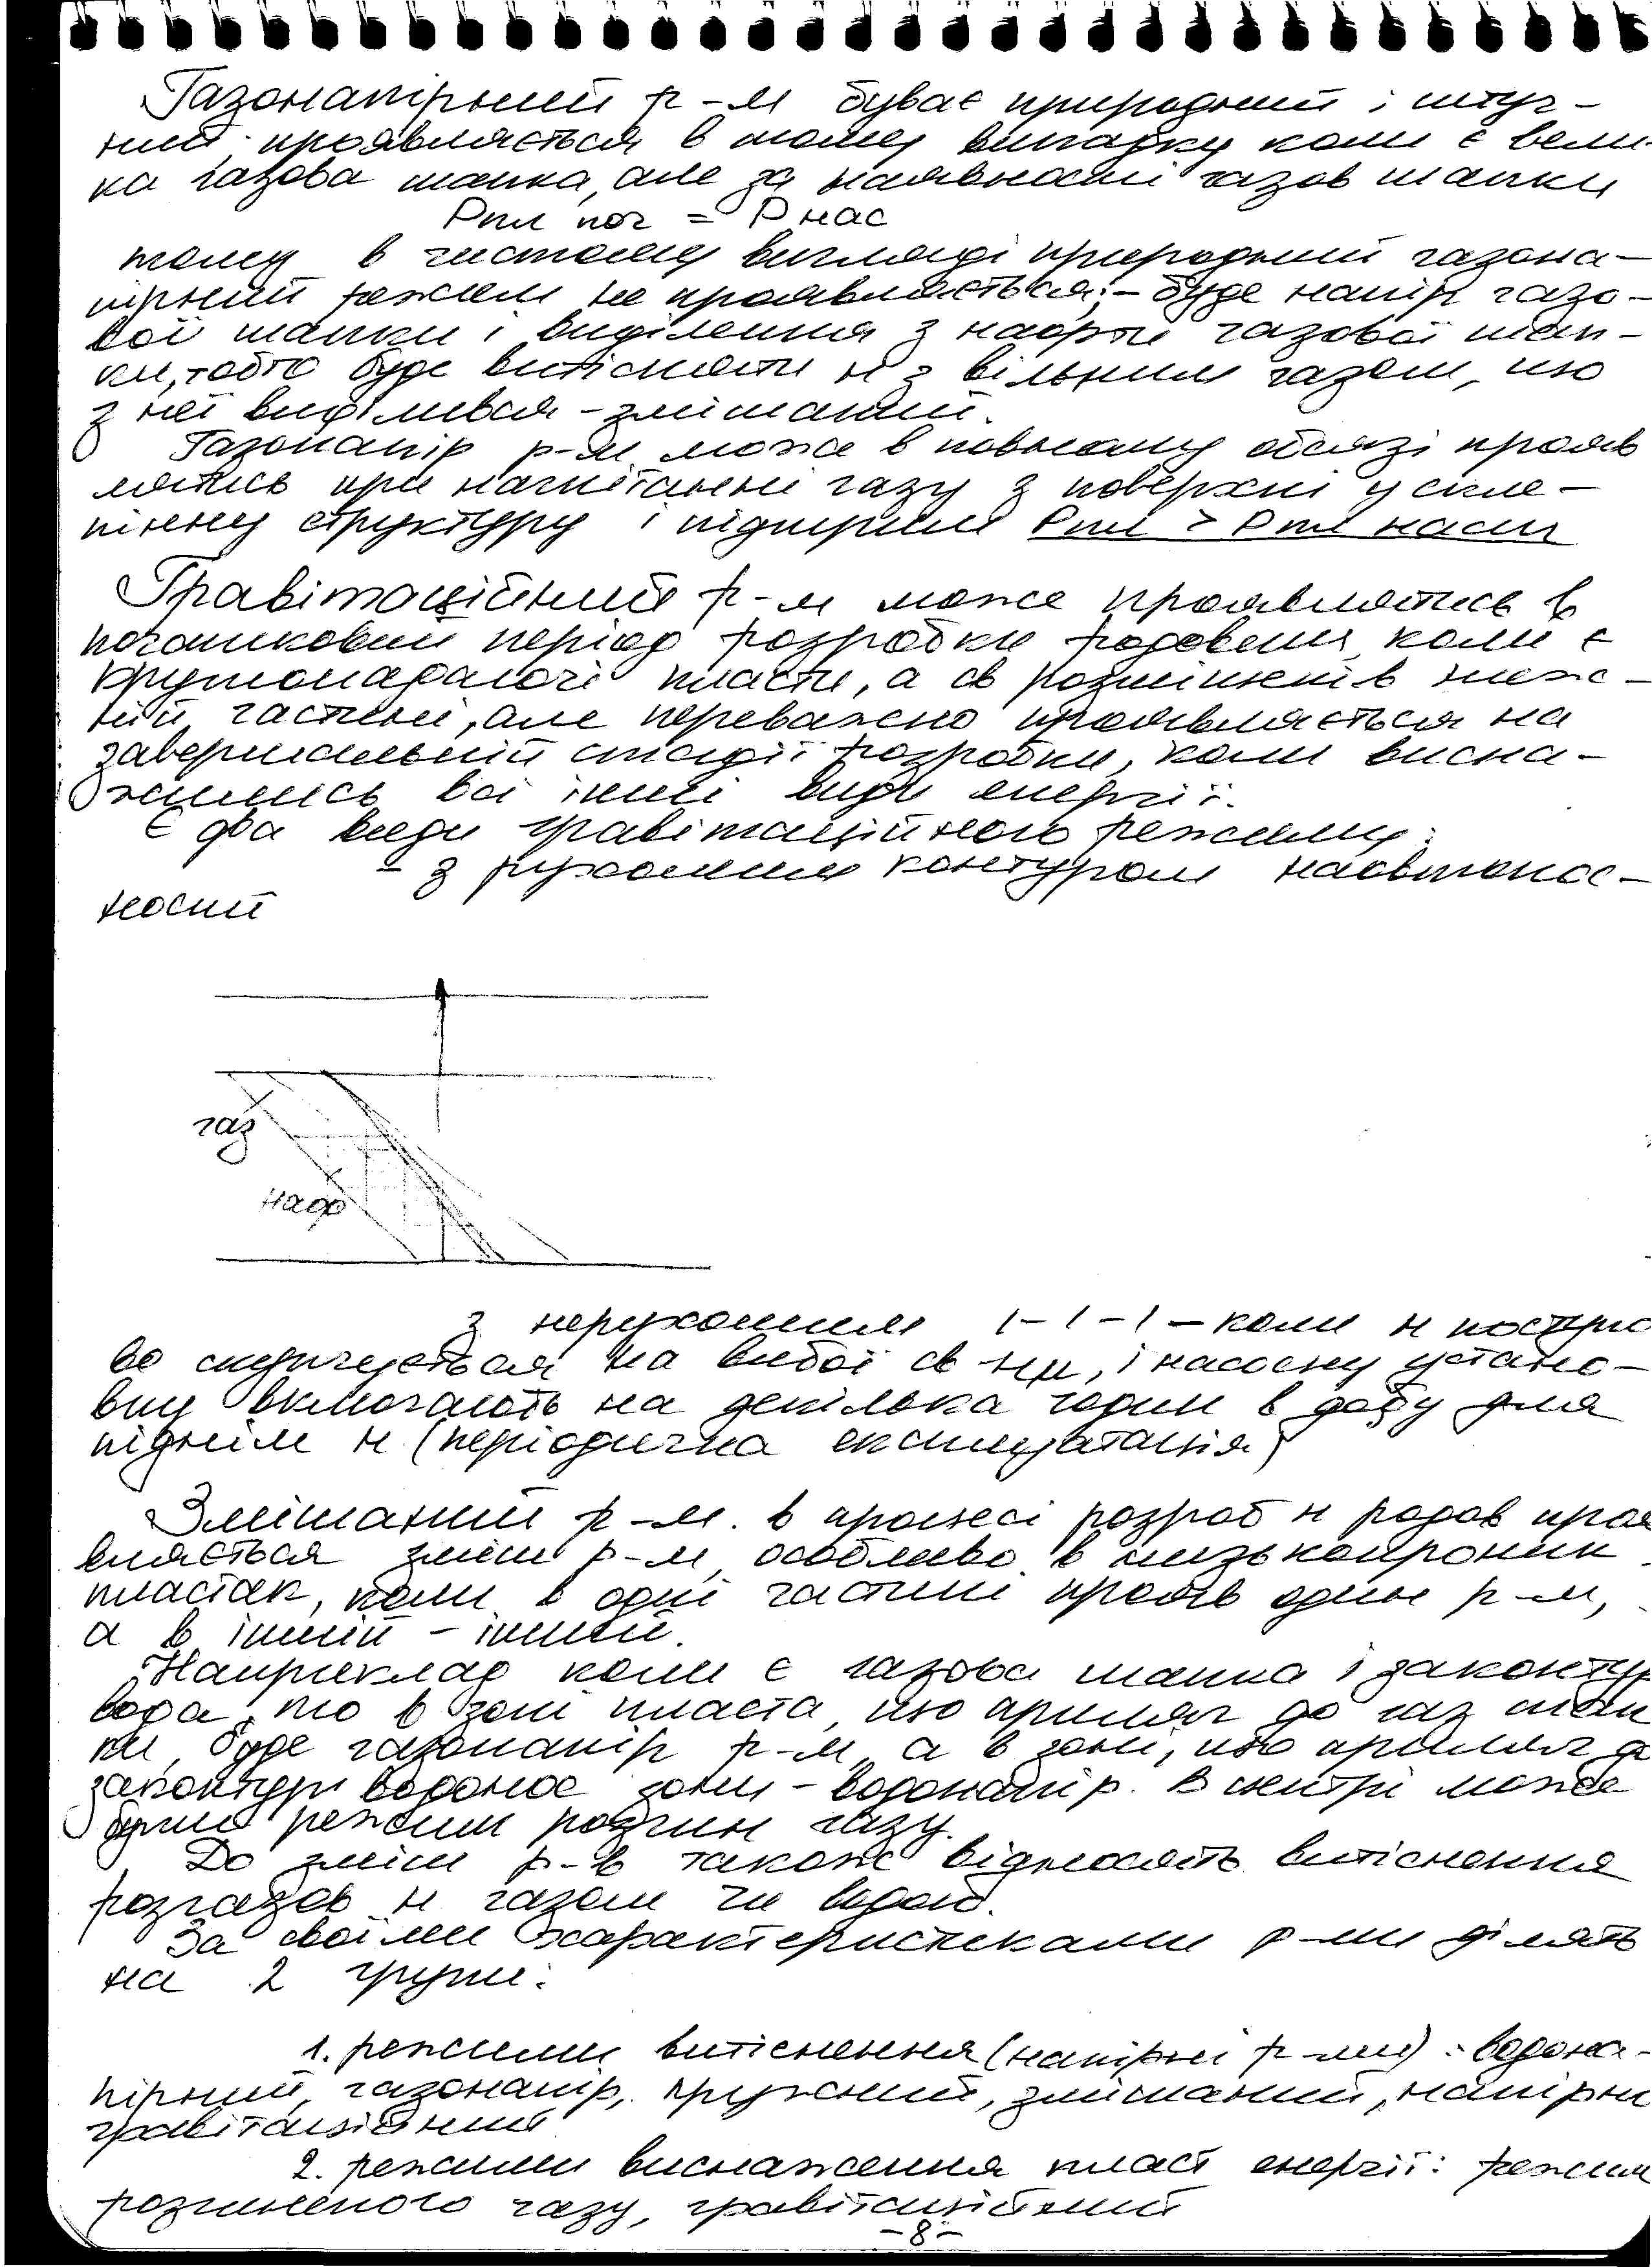 Газонапірний р-м буває природний і штуч-
ний проявляється в тому випадку коли є вели-
ка газова шапка, але за наявності газов шапки
Рпл поч = Рнас
тому в чистому вигляді природний газона-
пірний режим не проявляється; - буде напір газо-
вої шапки і виділення з нафти газової шап-
ки, тобто буде витісняти н з вільним газом, що
з неї виділився - змішаний.
Газонапір р-м може в повному обсязі прояв
лятись при нагнітанні газу з поверхні у скле-
пінну структуру і підтримці Рпл > Рпл насич
Гравітаційний р-м може проявлятись в
початковий період розробки родовищ, коли є
крутопадаючі пласти, а св розміщені в ниж-
ній частині, але переважно проявляється на
завершальній стадії розробки, коли висна-
жились всі інші види енергії.
Є два види гравітаційного режиму:
- з рухомим контуром нафтонос-
ності
газ
наф
з нерухомим -"-"-"- коли н поступо
во скупчується на вибої св н, і насосну устано-
вку включають на декілька годин в добу для
підйом н (періодична експлуатація)
Змішаний р-м. в процесі розроб н родов проя
вляється зміш р-м, особливо в низькопроник
пластах, коли в одні частині прояв один р-м,
а в іншій - інший.
Наприклад коли є газова шапка і законтур
вода, то в зоні пласта, що приляг до газ шап
ки, буде газонапір р-м, а в зоні, що приляг до
законтур водонос зони - водонапір. В центрі може
бути режим розчин газу.
До зміш р-в також відносять витіснення
розгазов н газом чи водою.
За своїми характеристиками р-ми ділять
на 2 групи:
1. режими витіснення (напірні р-ми): водона-
пірний, газонапір, пружний, змішаний, напірни
гравітаційний
2. режими виснаження пласт енергії: режим
розчиненого газу, гравітаційний
-8-